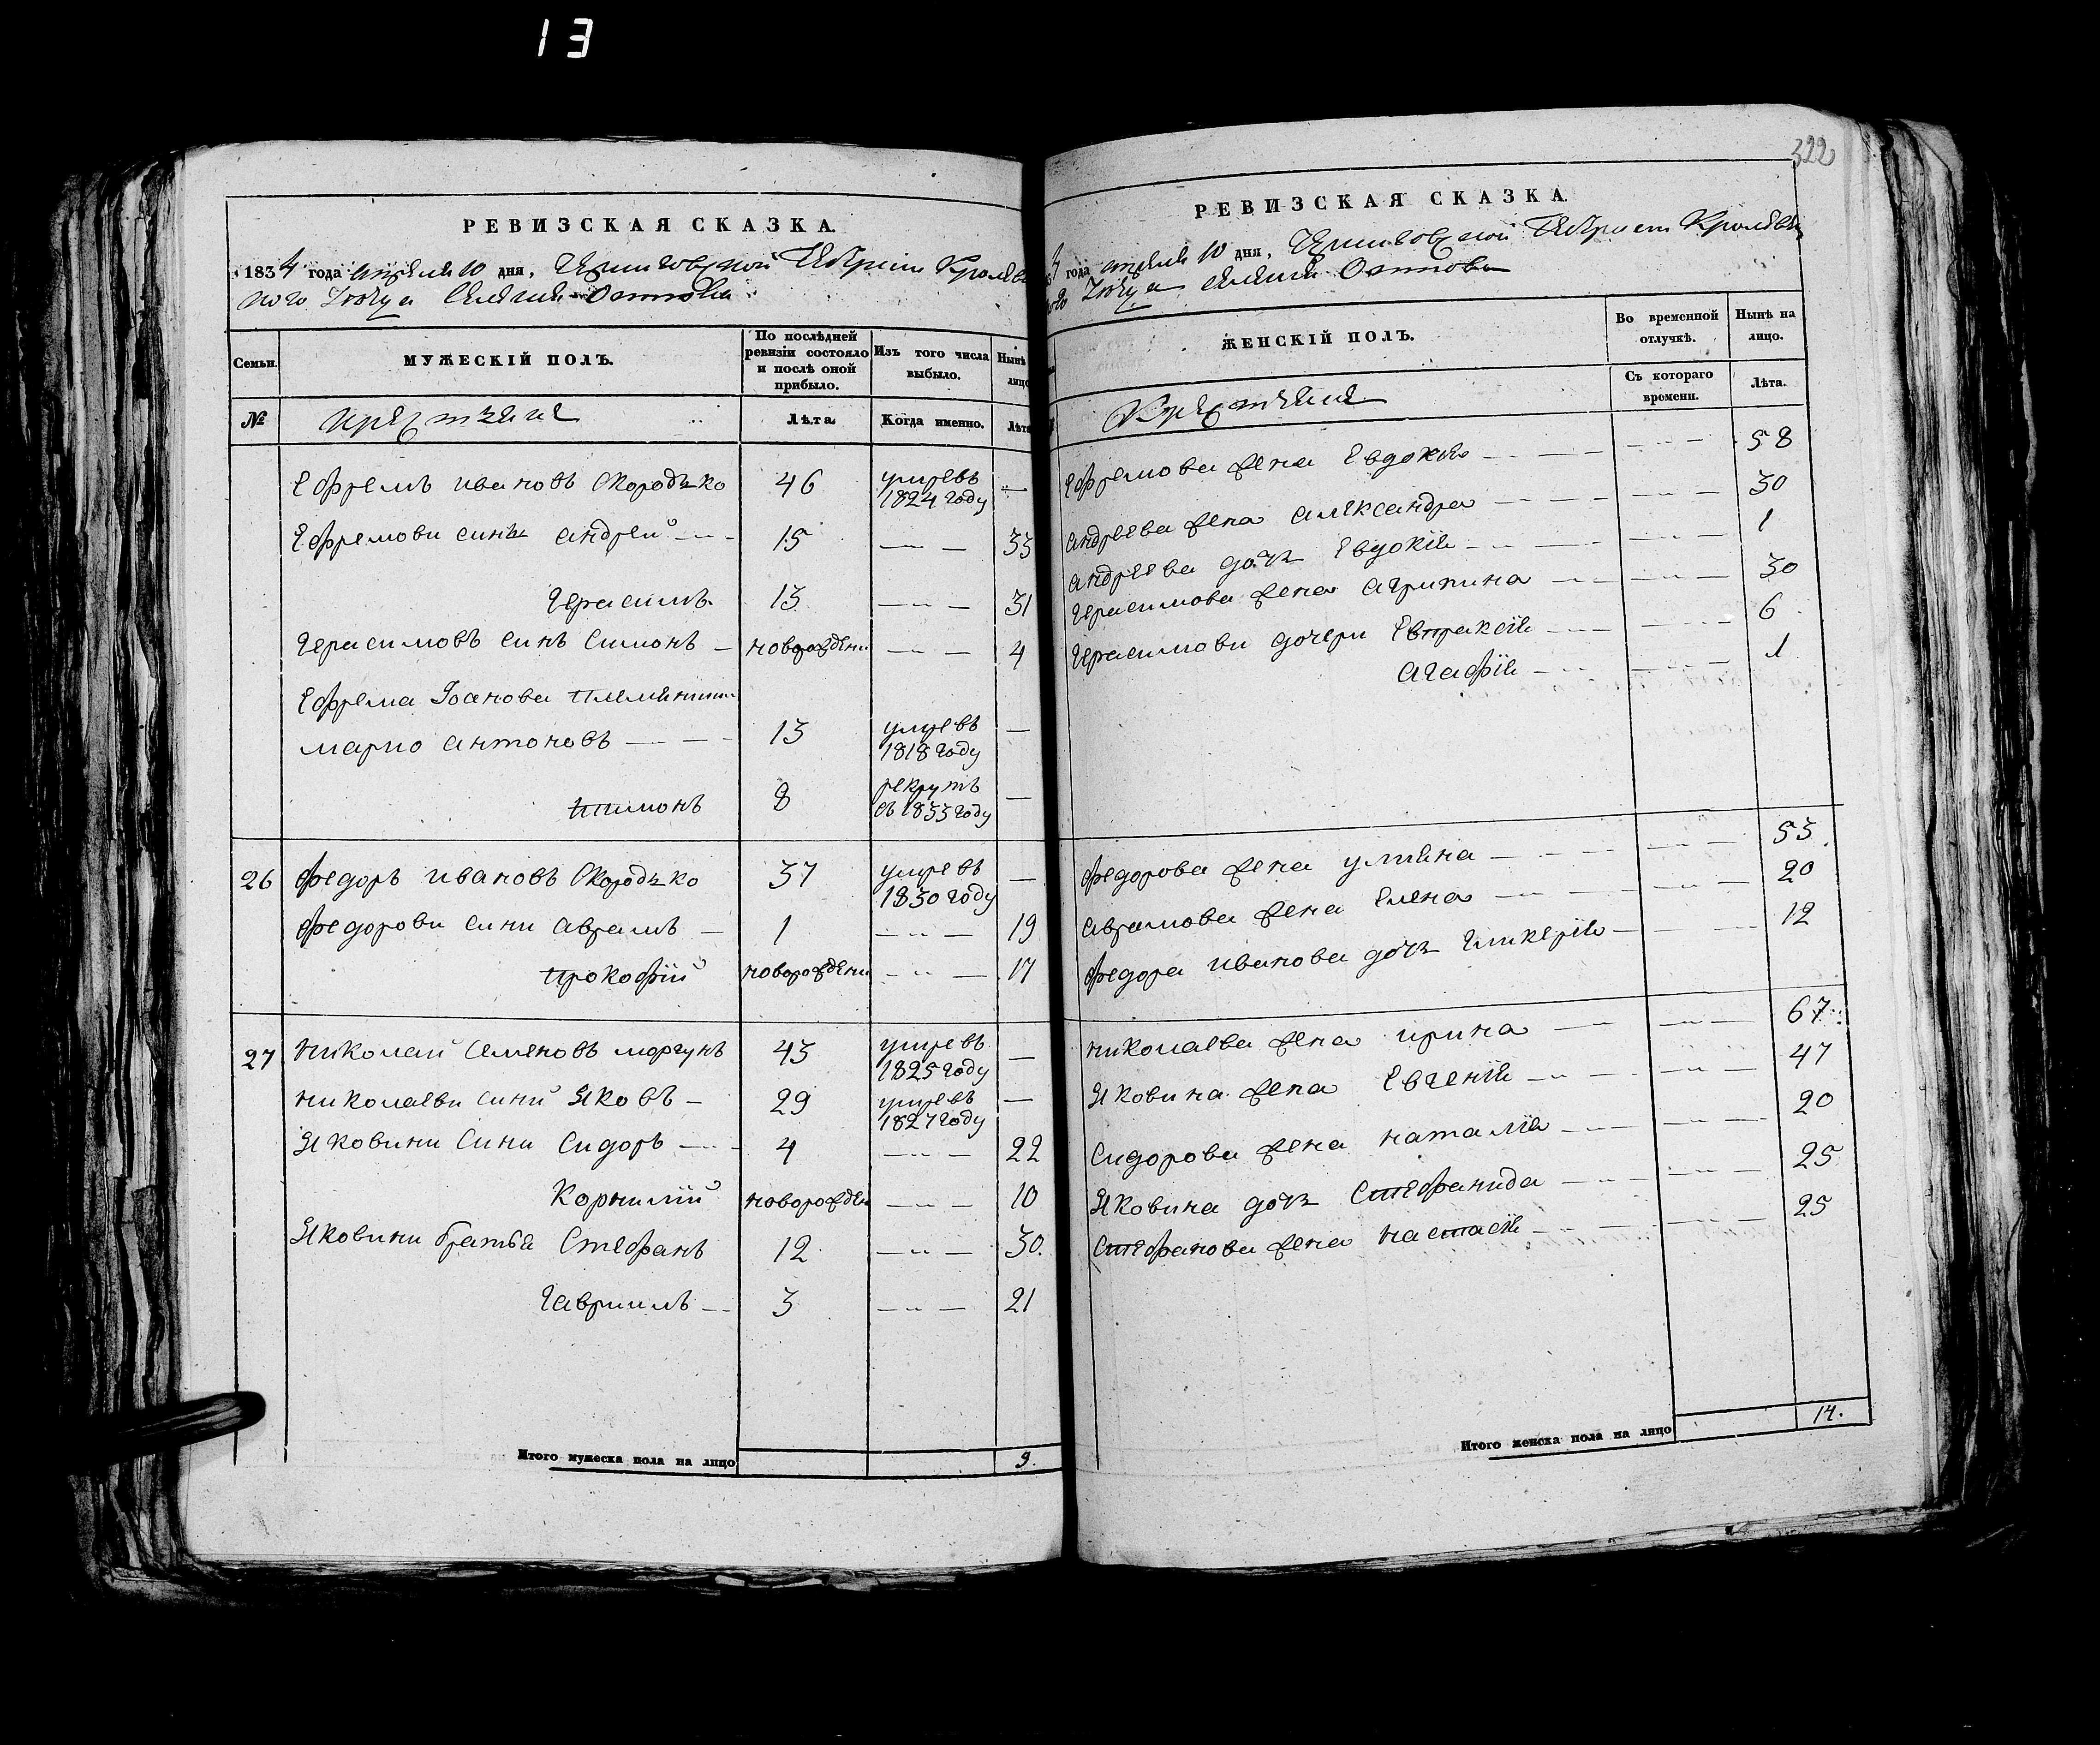 13
322
РЕВИЗСКАЯ СКАЗКА.
1834 года апреля 10 дня, Черниговской Губернии Кролевец
кого уезда селения
Семьи.
МУЖЕСКІЙ ПОЛЪ.
По послѣдней ревизіи состояло и послѣ оной прибыло.
Изъ того числа выбыло.
Нынѣ
лицо
№
крестьяне
Лѣта.
Когда именно.
Лѣта
Ефремъ Ивановъ Скородько 46 умревъ 1824 году —
Ефремови сини Андрей 15 — „ — 33
Герасимъ 13 — „ — 31
Герасимовъ синъ Симонъ новорожден — „ — 4
Ефрема Иванова племянники
Марко Антоновъ 13 умревъ 1818 году —
Тимонъ 8 рекрутъ въ 1833 году —
26 Федоръ Ивановъ Скородько 37 умревъ 1830 году —
Федорови сини Аврамъ 1 — „ — 19
Прокофій новорожден — „ — 17
27 Николай Семеновъ Моргунъ 43 умревъ 1825 году —
Николаеви сини Яковъ 29 умревъ 1827 году —
Яковини сини Сидоръ 4 — „ — 22
Корнилій новорожден — „ — 10
Яковини братья Стефанъ 12 — „ — 30.
Гавриилъ 3 — „ — 21
Итого мужеска пола на лицо 9.
РЕВИЗСКАЯ СКАЗКА
4 года апреля 10 дня, Черниговской Губернии Кролевец
кого уезда селения
ЖЕНСКІЙ ПОЛЪ.
Во временной отлучкѣ.
Нынѣ на лицо.
Крестьяне
Съ котораго времени.
Лѣта.
Ефремова жена Евдокія — „ — 58
Андреева жена Александра — „ — 30
Андреева дочь Евдокія — „ — 1
Герасимова жена Агрипина — „ — 30
Герасимови дочери Евпраксія — „ — 6
Агафія — „ — 1
Федорова жена Улияна — „ — 53.
Аврамова жена Елена — „ — 20
Федора Иванова дочь Гликерія — „ — 12
Николаева жена Ирина — „ — 67
Яковина жена Евгенія — „ — 47
Сидорова жена Наталія — „ — 20
Яковина дочь Стефанида — „ — 25
Стефанова жена Настасія — „ — 25
Итого женска пола на лицо 14.